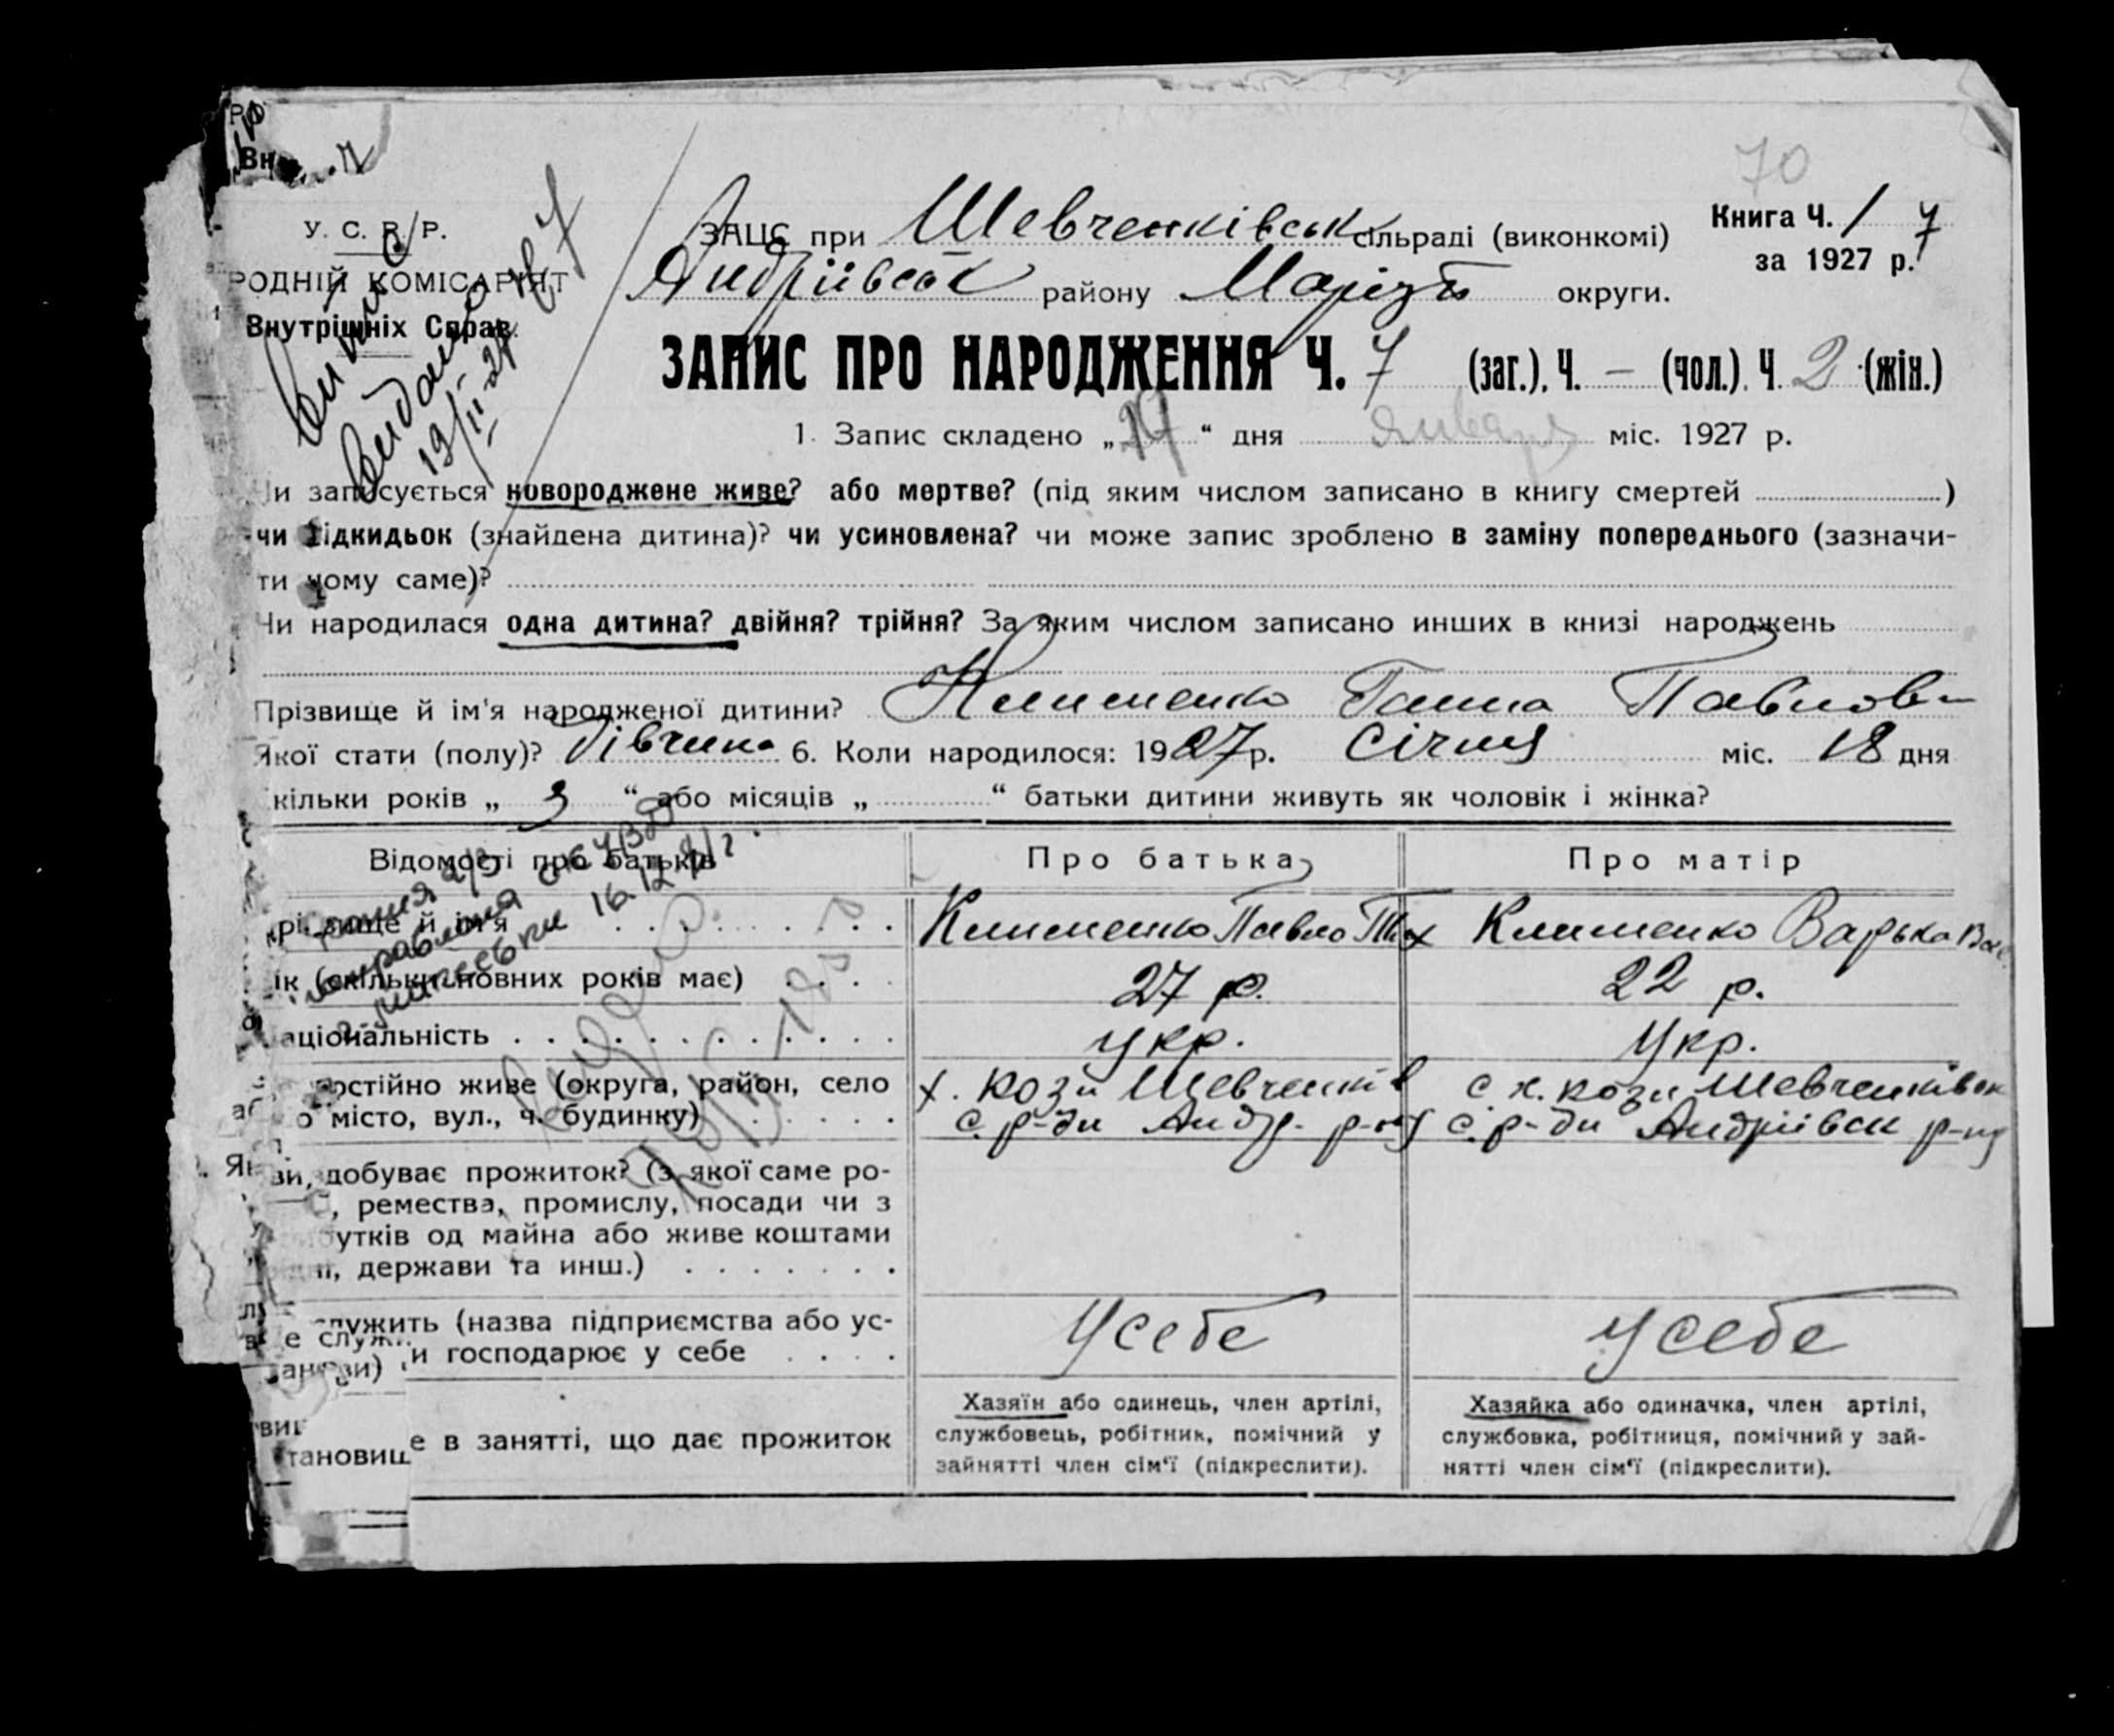 70
У. С. Р. Р.
РОДНІЙ КОМІСАРІЯТ
Внутрішніх Справ.
Витяг
видано
19/II-27 № 7
ЗАЦС при Шевченківськ сільраді (виконкомі)
Книга Ч. 1 7
за 1927 р.
Андріївськ району Маріуп округи.
ЗАПИС ПРО НАРОДЖЕННЯ Ч. 7 (заг.), Ч. — (чол.), Ч. 2 (жін.)
1. Запис складено „ “ дня января міс. 1927 р.
Чи записується новороджене живе? або мертве? (під яким числом записано в книгу смертей )
чи підкидьок (знайдена дитина)? чи усиновлена? чи може запис зроблено в заміну попереднього (зазначи-
ти чому саме)?
Чи народилася одна дитина? двійня? трійня? За яким числом записано инших в книзі народжень
Прізвище й ім'я народженої дитини? Клименко Ганна Павлов
Якої стати (полу)? дівчина 6. Коли народилося: 1927 р. Січня міс. 18 дня
кільки років „ 3 “ або місяців „ “ батьки дитини живуть як чоловік і жінка?
Відомості про батьків Про батька Про матір
16.12
різвище й ім'я Клименко Павло Тих Клименко Варька Вас.
ік (скільки повних років має) 27 р. 22 р.
аціональність укр. Укр.
остійно живе (округа, район, село х. Шевченків с х. Шевченківськ
о місто, вул., ч. будинку) с. р-ди Андр. р-ну с. р-ди Андріївськ р-ну
добуває прожиток? (з якої саме ро-
, ремества, промислу, посади чи з
утків од майна або живе коштами
, держави та инш.)
служить (назва підприємства або ус-
и господарює у себе У себе У себе
е в занятті, що дає прожиток
Хазяїн або одинець, член артілі,
службовець, робітник, помічний у
зайнятті член сім'ї (підкреслити).
Хазяйка або одиначка, член артілі,
службовка, робітниця, помічний у зай-
нятті член сім'ї (підкреслити).